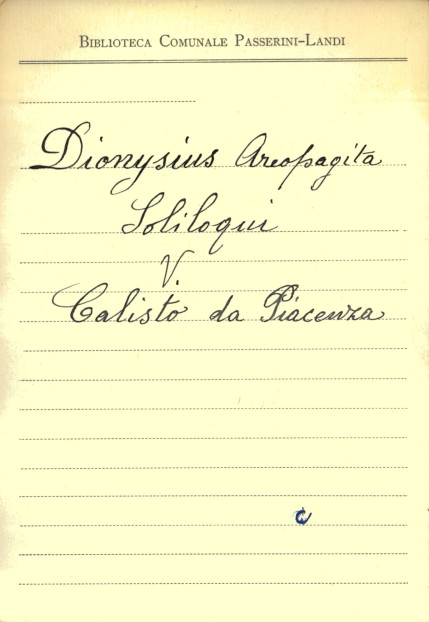 BIBLIOTECA COMUNALE PASSERINI-LANDI
Dionysius Areopagita
Soliloqui
V.
Calisto da Piacenza
C